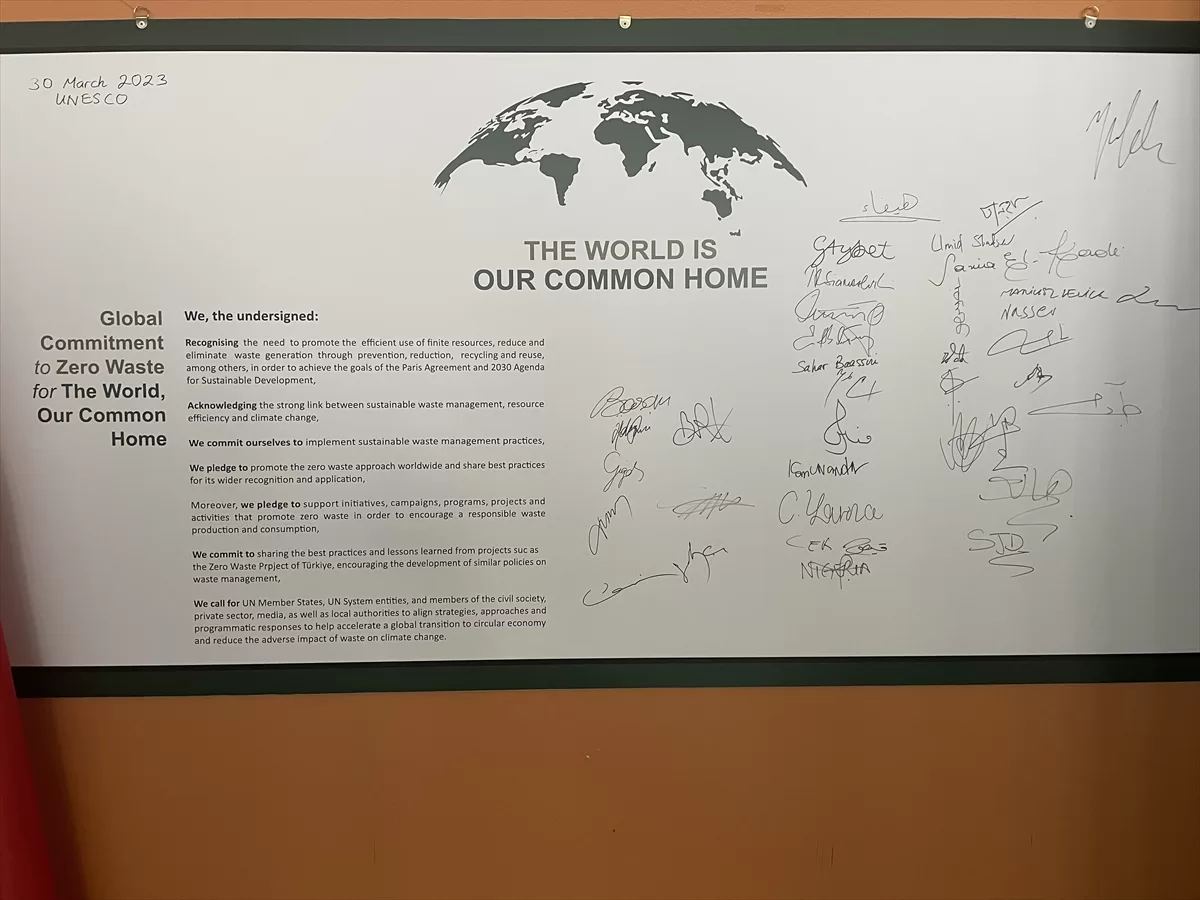 30 March 2023
UNESCO
THE WORLD IS
OUR COMMON HOME
Global
Commitment
to Zero Waste
for The World,
Our Common
Home
We, the undersigned:
Recognising the need to promote the efficient use of finite resources, reduce and
eliminate waste generation through prevention, reduction, recycling and reuse,
among others, in order to achieve the goals of the Paris Agreement and 2030 Agenda
for Sustainable Development,
Acknowledging the strong link between sustainable waste management, resource
efficiency and climate change,
We commit ourselves to implement sustainable waste management practices,
We pledge to promote the zero waste approach worldwide and share best practices
for its wider recognition and application,
Moreover, we pledge to support initiatives, campaigns, programs, projects and
activities that promote zero waste in order to encourage a responsible waste
production and consumption,
We commit to sharing the best practices and lessons learned from projects suc as
the Zero Waste Prpject of Türkiye, encouraging the development of similar policies on
waste management,
We call for UN Member States, UN System entities, and members of the civil society,
private sector, media, as well as local authorities to align strategies, approaches and
programmatic responses to help accelerate a global transition to circular economy
and reduce the adverse impact of waste on climate change.
هيفاء
Umid
Sahar
NASSER
STD
NIGERIA